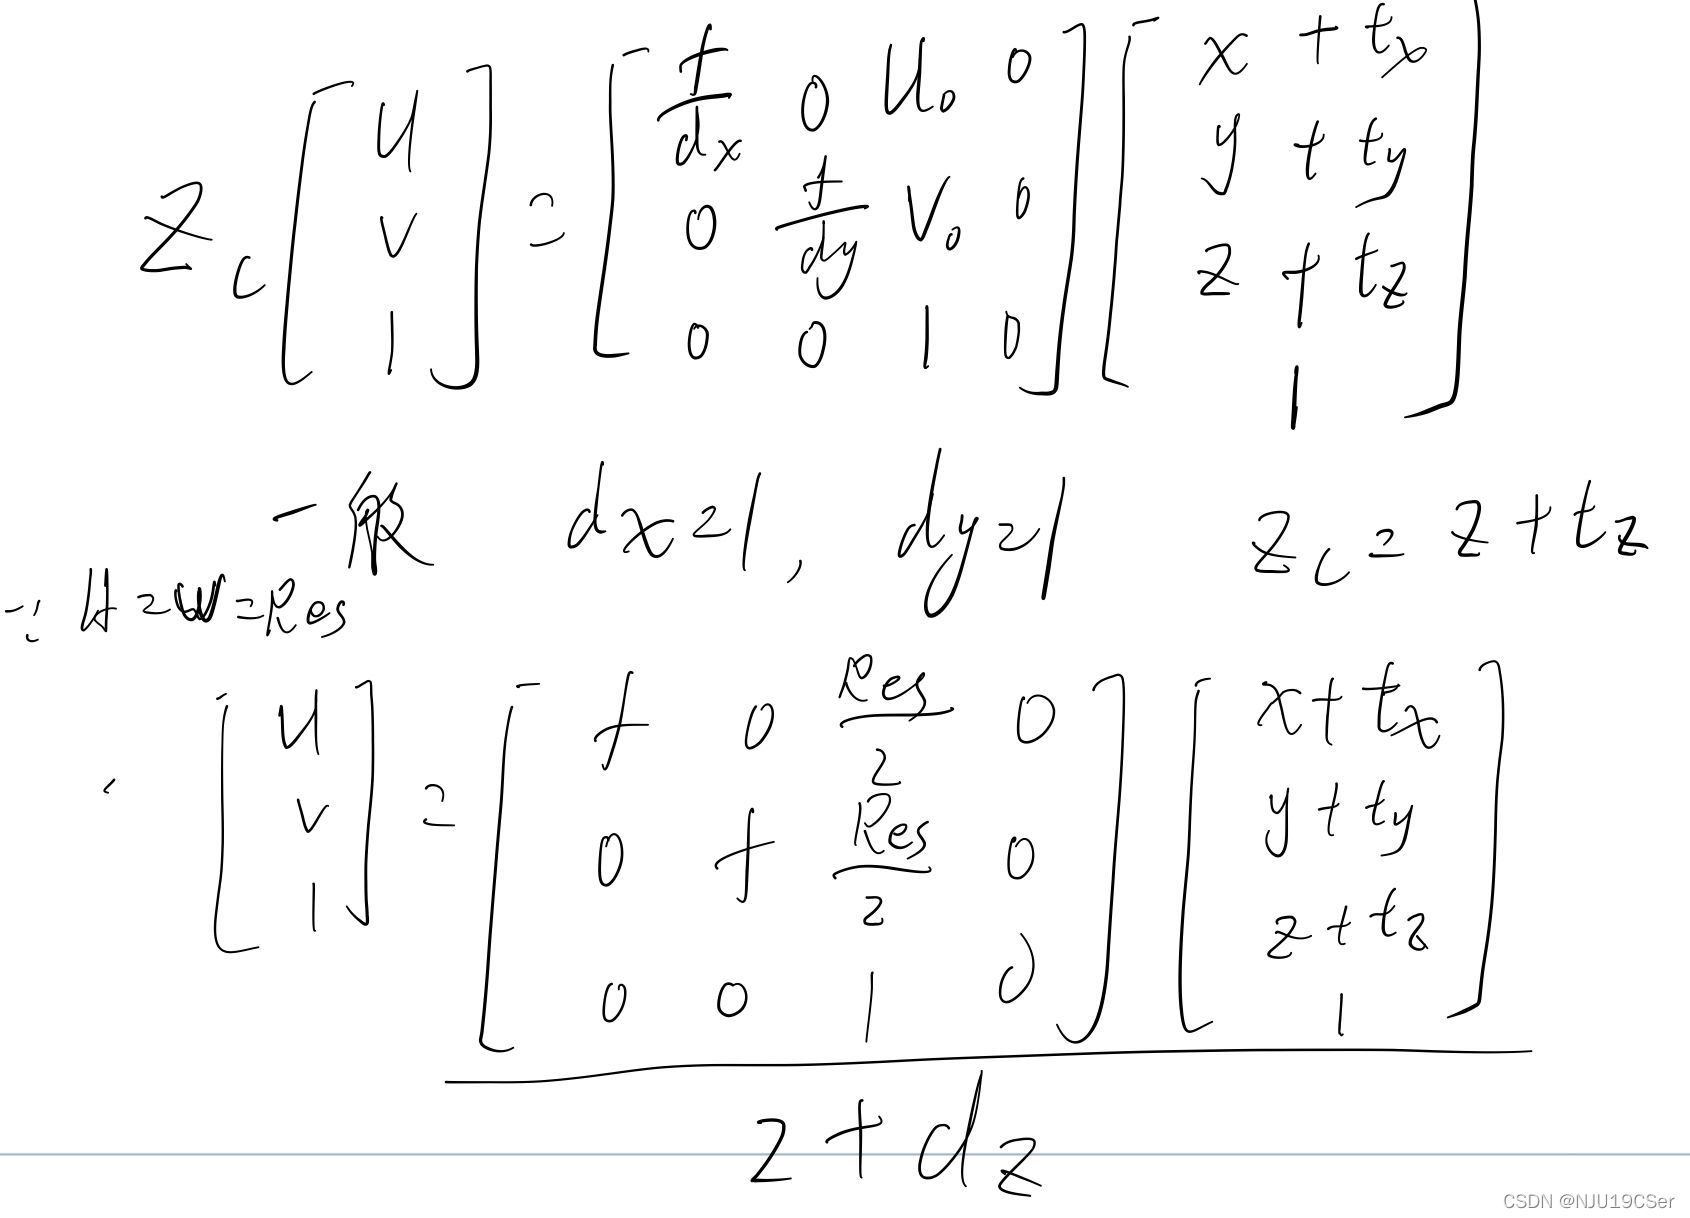 Z_c [u; v; 1] = [f/dx 0 u_0 0; 0 f/dy v_0 0; 0 0 1 0] [x + t_x; y + t_y; z + t_z; 1]
一般 dx=1, dy=1 Z_c = z + t_z
∵ H=W=Res
[u; v; 1] = [f 0 Res/2 0; 0 f Res/2 0; 0 0 1 0] [x + t_x; y + t_y; z + t_z; 1] / z + dz
CSDN @NJU19CSer